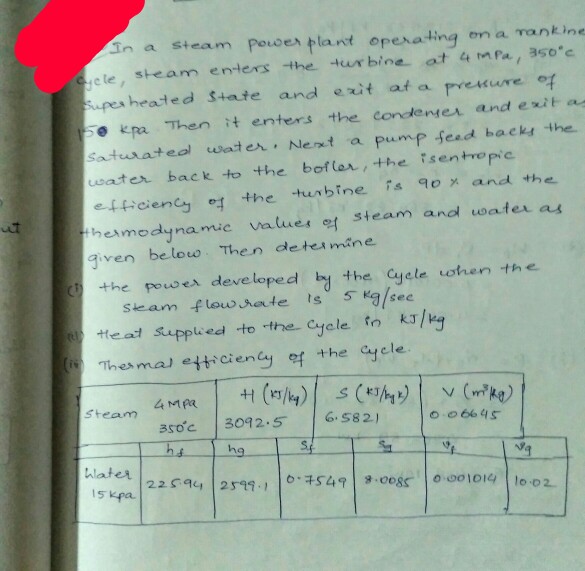 In a steam power plant operating on a rankine
cycle, steam enters the turbine at 4 MPa, 350°c
superheated state and exit at a pressure of
150 kpa. Then it enters the condenser and exit as
saturated water. Next a pump feed backs the
water back to the boiler, the isentropic
efficiency of the turbine is 90 % and the
thermodynamic values of steam and water as
given below. Then determine
(i) the power developed by the cycle when the
steam flow rate is 5 kg/sec
(ii) Heat supplied to the cycle in kJ/kg
(iii) Thermal efficiency of the cycle.
Steam 4 MPa 350°C H (kJ/kg) 3092.5 S (kJ/kgk) 6.5821 V (m³/kg) 0.06645
hf hg Sf Sg Vf Vg
Water 15 kpa 225.94 2599.1 0.7549 8.0085 0.001014 10.02
ut